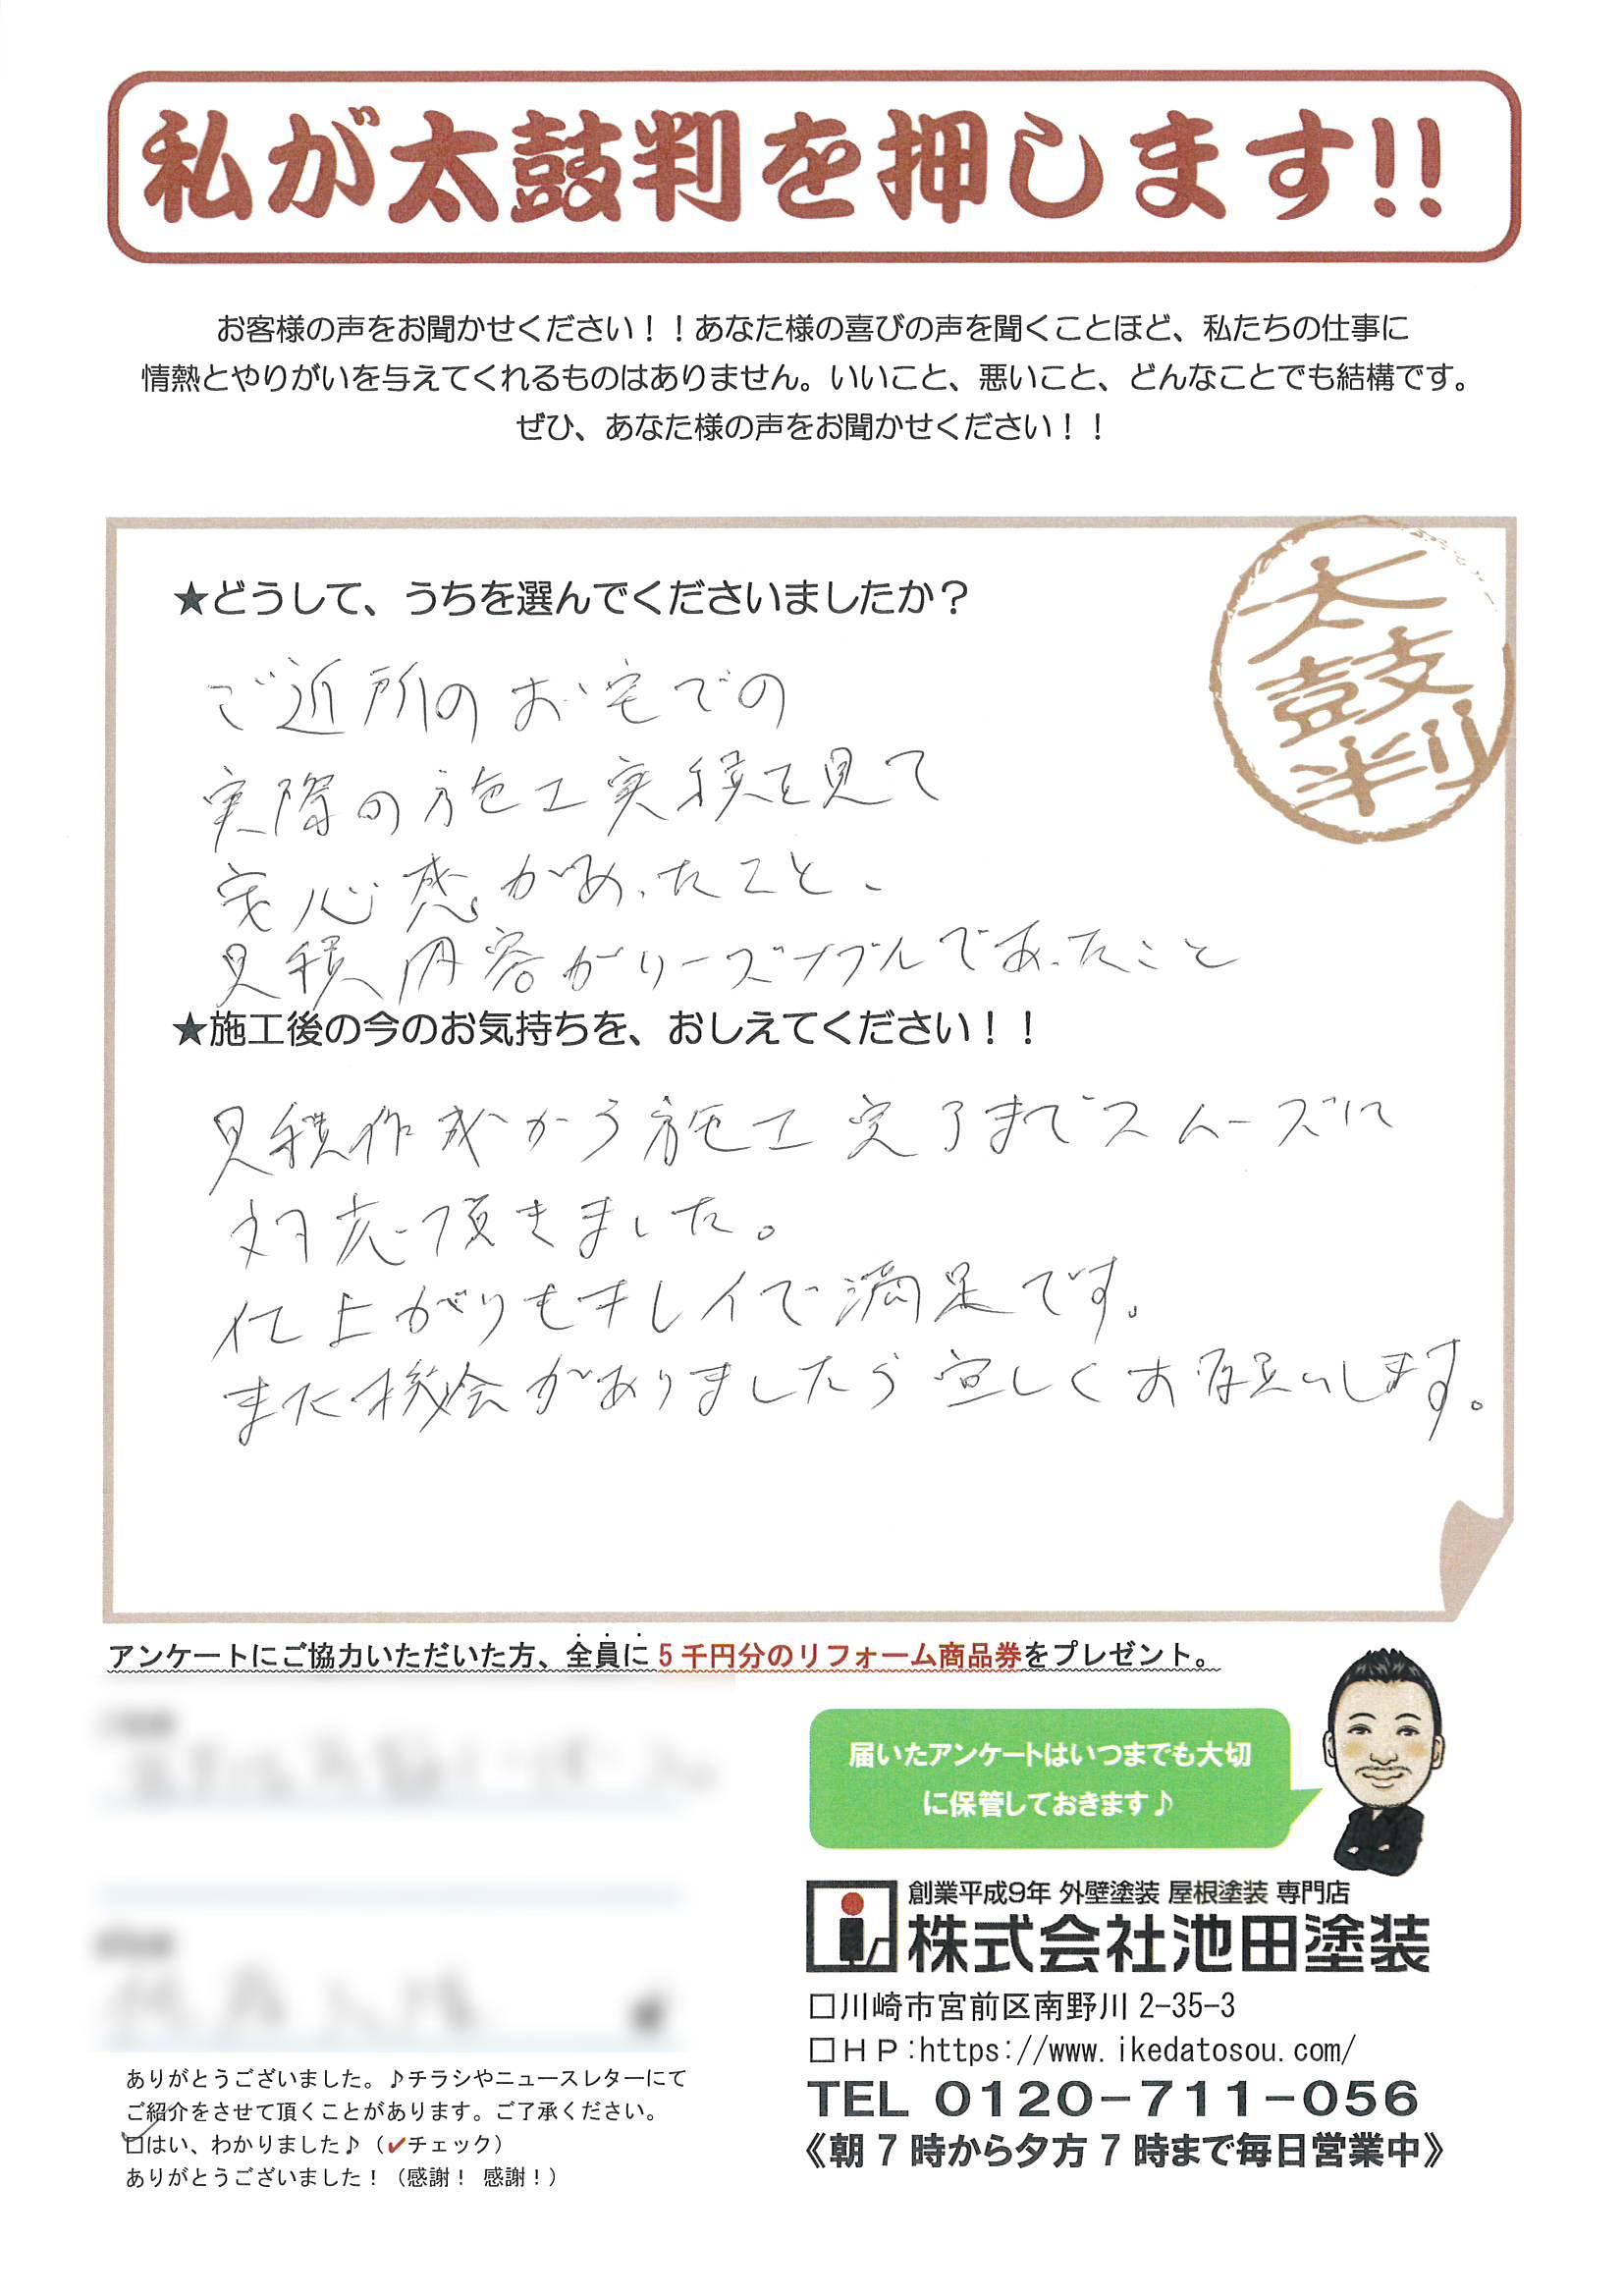 私が太鼓判を押します!!
お客様の声をお聞かせください！！あなた様の喜びの声を聞くことほど、私たちの仕事に
情熱とやりがいを与えてくれるものはありません。いいこと、悪いこと、どんなことでも結構です。
ぜひ、あなた様の声をお聞かせください！！
太鼓判
★どうして、うちを選んでくださいましたか？
ご近所のお宅での
実際の施工実績を見て
安心感があったこと、
見積内容がリーズナブルであったこと
★施工後の今のお気持ちを、おしえてください！！
見積作成から施工完了までスムーズに
対応頂きました。
仕上がりもキレイで満足です。
また機会がありましたら宜しくお願いします。
アンケートにご協力いただいた方、全員に5千円分のリフォーム商品券をプレゼント。
届いたアンケートはいつまでも大切
に保管しておきます♪
創業平成9年 外壁塗装 屋根塗装 専門店
株式会社池田塗装
□川崎市宮前区南野川2-35-3
□ＨＰ:https://www.ikedatosou.com/
TEL 0120-711-056
《朝7時から夕方7時まで毎日営業中》
ありがとうございました。♪チラシやニュースレターにて
ご紹介をさせて頂くことがあります。ご了承ください。
□はい、わかりました♪（✔チェック）
ありがとうございました！（感謝！ 感謝！）